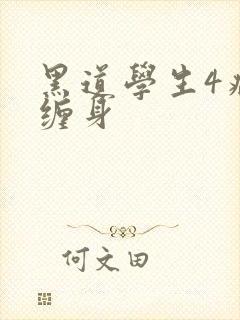 黑道學生4
缠身
何文田